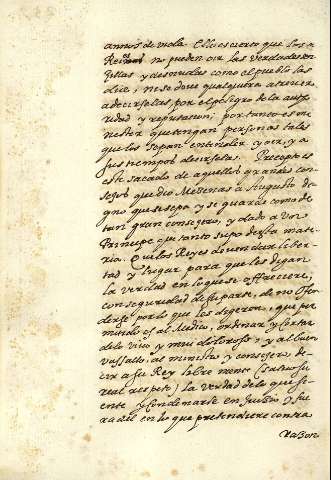 animos de nola. Ello es cierto que los
Reinos no pueden oir las verdades en
Jollas y desnudas como el pueblo las
dice, ni se deve qualquiera atrever
a decirselas por el peligro de la auto
ridad y reputacion, por tanto es me
nester que tengan personas tales
que los sepan entender y oir, y a
sus tiempos decirselas. Precepto es
este sacado de aquellos grandes con
sejos que dio Mecenas a Augusto di
gno que se sepa y se guarde como de
tan gran consejero, y dado a un
Principe que tanto supo desta mate
ria. Que los Reyes deven dar liber
tad y lugar para que les digan
la verdad en lo que se offreciere,
con seguridad de su parte, de no ofen
derse por lo que les dixeren, que per
mitido es al Medico, ordenar y cortar
de lo vivo y mui doloroso, y al buen
vassallo, al ministro y consejero de
cir a su Rey libremente (salvo su
real respeto) la verdad de lo que si
ente y condenarse en juizio y fue
ra del en lo que pretendiere contra
razon